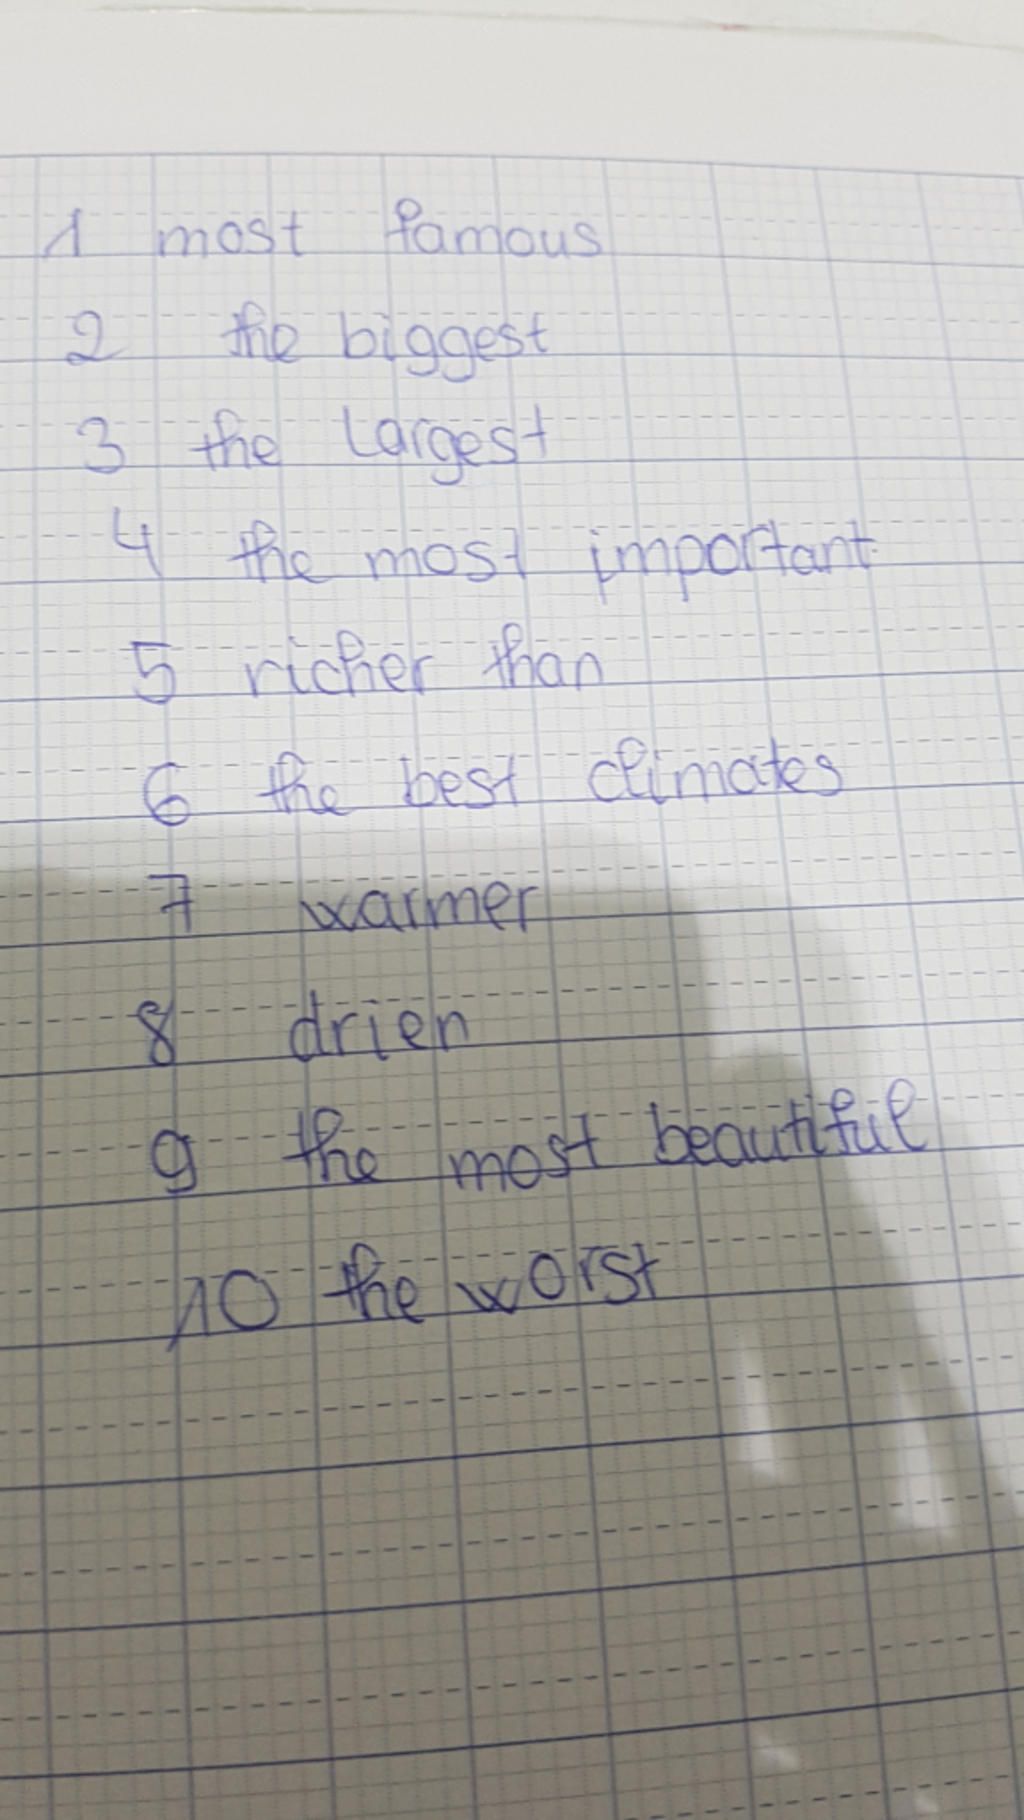 1 most famous
2 the biggest
3 the largest
4 the most important
5 richer than
6 the best climates
7 warmer
8 drien
9 the most beautiful
10 the worst